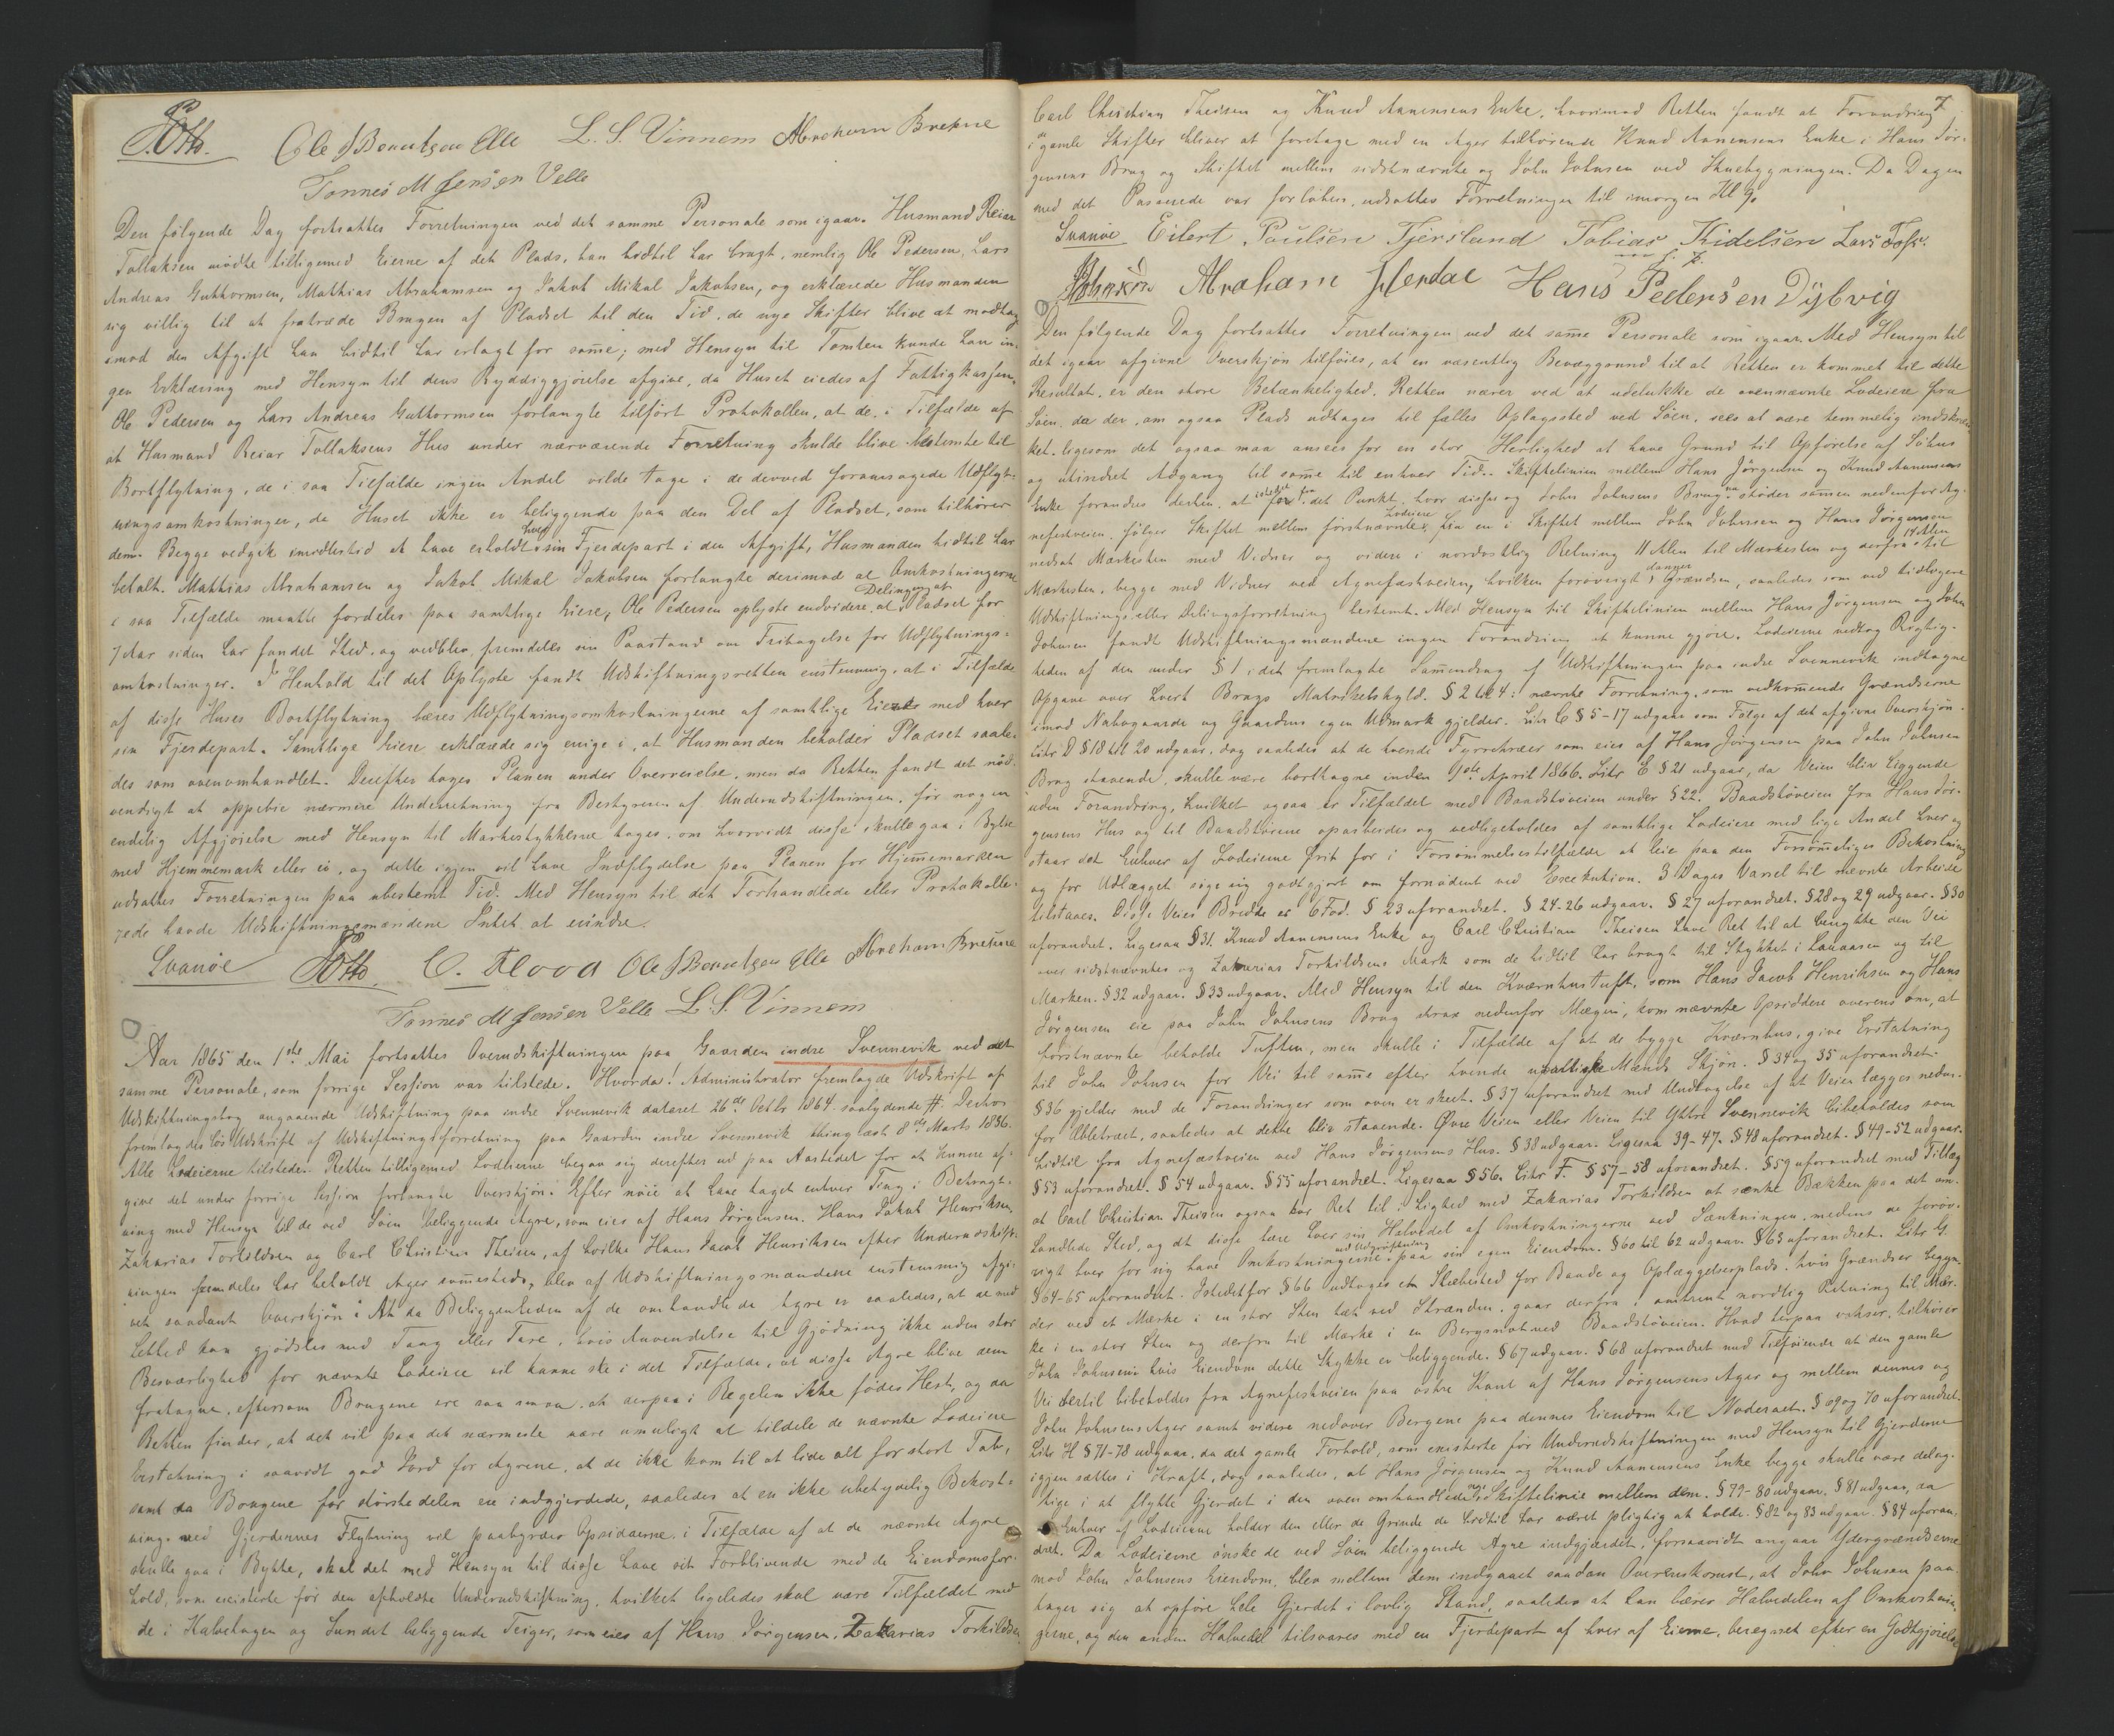 SOtto. Ole S Berentsen Elle L. S. Vinnem Abraham Brekne
Tonnes M Jensen Velle
Den følgende Dag fortsattes Forretningen ved det samme Personale som igaar. Husmand Reiar
Tollaksen mødte tilligemed Eierne af det Plads, han hidtil har brugt, nemlig Ole Pedersen, Lars
Andreas Guttormsen, Mathias Abrahamsen og Jakob Mikal Jakobsen, og erklærede Husmanden
sig villig til at fratræde Brugen af Pladset til den Tid, de nye Skifter blive at modtage
imod den Afgift han hidtil har erlagt for samme; med Hensyn til Tomten kunde han in-
gen Erklæring med Hensyn til dens Ryddiggjørelse afgive, da Huset eiedes af Fattigkassen.
Ole Pedersen og Lars Andreas Guttormsen forlangte tilført Protokollen, at de, i Tilfælde af
at Husmand Reiar Tollaksens Hus under nærværende Forretning skulde blive bestemt til
Bortflytning, de i saa Tilfælde ingen Andel vilde tage i de derved foraarsagede Udflyt-
ningsomkostninger, da Huset ikke er beliggende paa den Del af Pladset, som tilhører
dem. Begge vedgik imidlertid at have erholdt hver sin Fjerdepart i den Afgift, Husmanden hidtil har
betalt. Mathias Abrahamsen og Jakob Mikal Jakobsen forlangte derimod at Omkostningerne
i saa Tilfælde maatte fordeles paa samtlige Eiere, Ole Pedersen oplyste endvidere, at Delingen af Pladset for
7 Aar siden har fundet Sted, og vedblev fremdeles sin Paastand om Fritagelse for Udflytnings-
omkostninger. I Henhold til det Oplyste fandt Udskiftningsretten enstemmig, at i Tilfælde
af disse Huses Bortflytning bæres Udflytningsomkostningerne af samtlige Eiere med hver
sin Fjerdepart. Samtlige Eiere erklærede sig enige i, at Husmanden beholder Pladset saale-
des som ovenomhandlet. Derefter toges Planen under Overveielse, men da Retten fandt det nød-
vendigt at oppebie nærmere Underretning fra Bestyreren af Underudskiftningen, før nogen
endelig Afgjørelse med Hensyn til Markestykkerne toges, om hvorvidt disse skulle gaa i Bytte
med Hjemmemark eller ei, og dette igjen vil have Indflydelse paa Planen for Hjemmemarken
udsattes Forretningen paa ubestemt Tid. Med Hensyn til det Forhandlede eller Protokolle-
rede havde Udskiftningsmændene Intet at erindre.
Svanøe SOtto. C. Flood Ole S Berentsen Elle Abraham Brekne
Tonnes M Jensen Velle L. S. Vinnem
Aar 1865 den 1ste Mai fortsattes Overudskiftningen paa Gaarden indre Svennevik ved det
samme Personale, som forrige Session var tilstede. Hvorda! Administrator fremlagde Udskrift af
Udskiftningstog angaaende Udskiftning paa indre Svennevik dateret 26de Octbr 1864 saalydende #. Derhos
fremlagdes løs Udskrift af Udskiftningsforretning paa Gaarden indre Svennevik thinglæst 8de Marts 1856.
Alle Lodeierne tilstede. Retten tilligemed Lodeierne begav sig derefter ud paa Aastedet for at kunne af-
give det under forrige Session forlangte Overskjøn. Efter nøie at have taget enhver Ting i Betragt-
ning med Hensyn til de ved Søen beliggende Agre, som eies af Hans Jørgensen, Hans Jakob Henriksen,
Zakarias Torkildsen og Carl Christian Theisen, af hvilke Hans Jacob Henriksen efter Underudskift-
ningen fremdeles har beholdt Ager sammesteds, blev af Udskiftningsmændene enstemmig afgi-
vet saadant Overskjøn: At da Beliggenheden af de omhandlede Agre er saaledes, at de med
Lethed kan gjødsles med Tang eller Tare, hvis Anvendelse til Gjødning ikke uden stor
Besværlighed for nævnte Lodeiere vil kunne ske i det Tilfælde, at disse Agre blive dem
fratagne, eftersom Brugene ere saa smaa, at derpaa i Regelen ikke fødes Hest, og da
Retten finder, at det vil paa det nærmeste være umuligt at tildele de nævnte Lodeiere
Erstatning i saavidt god Jord for Agrene, at de ikke kom til at lide alt for stort Tab,
samt da Brugene for størstedelen ere indgjerdede, saaledes at en ikke ubetydelig Bekost-
ning ved Gjerdernes Flytning vil paabyrdes Opsidderne i Tilfælde af at de nævnte Agre
skulle gaa i Bytte, skal det med Hensyn til disse have sit Forblivende med de Eiendomsfor-
hold, som existerte før den afholdte Underudskiftning, hvilket ligeledes skal være Tilfældet med
de i Kalvehagen og Sundet beliggende Teiger, som eies af Hans Jørgensen, Zakarias Torkildsen,
7
Carl Christian Theisen og Knud Aanensens Enke, hvorimod Retten fandt at Forandring
i de gamle Skifter bliver at foretage med en Ager tilhørende Knud Aanensens Enke i Hans Jør-
gensens Brug og Skiftet mellem sidstnævnte og John Johnsen ved Huusbygningen. Da Dagen
med det Passerede var forløben, udsattes Forretningen til imorgen Kl 9.
Svanøe Eilert Paulsen Tjersland Tobias Kidelsen Lars Foss.
Johnsen Abraham Hendal Hans Pedersen Dybvig
Den følgende Dag fortsattes Forretningen ved det samme Personale som igaar. Med Hensyn til
det igaar afgivne Overskjøn tilføies, at en væsentlig Bevæggrund til at Retten er kommet til dette
Resultat, er den store Betænkelighed, Retten nærer ved at udelukke de ovennævnte Lodeiere fra
Søen, da der, om ogsaa Plads udtages til fælles Oplagssted ved Søen, sees at være temmelig indskræn-
ket, ligesom det ogsaa maa ansees for en stor Herlighed at have Grund til Opførelse af Søhus
og uhindret Adgang til samme til enhver Tid. Skiftelinien mellem Hans Jørgensen og Knud Aanensens
Enke forandres derhen, at istedetfor fra det Punkt, hvor disse og John Johnsens Brug støder sammen nedenfor Ag-
nefestveien, følger Skiftet mellem førstnævnte Lodeiere fra en i Skiftet mellem John Johnsen og Hans Jørgensen
nedsat Mærkesten med Vidner og videre i nordostlig Retning 11 Alen til Mærkesten og derfra 14 Alen til
Mærkesten, begge med Vidner ved Agnefæstveien, hvilken forøvrigt danner Grændsen, saaledes som ved tidligere
Udskiftnings- eller Delingsforretning bestemt. Med Hensyn til Skiftelinien mellem Hans Jørgensen og John
Johnsen fandt Udskiftningsmændene ingen Forandring at kunne gjøre. Lodeierne vedtog Rigtig-
heden af den under § 1 i det fremlagte Sammendrag af Udskiftningen paa indre Svennevik indtagne
Opgave over hvert Brugs Matrikelskyld. § 2 til 4 i nævnte Forretning, som vedkommende Grændserne
imod Nabogaarde og Gaardens egen Udmark gjelder. Litr C § 5-17 udgaar som Følge af det afgivne Overskjøn.
Litr D § 18 til 20 udgaar, dog saaledes at de tvende Fyrretræer som eies af Hans Jørgensen paa John Johnsens
Brug staaende, skulle være borttagne inden 1ste April 1866. Litr E § 21 udgaar, da Veien bliv liggende
uden Forandring, hvilket ogsaa er Tilfældet med Baadstøveien under § 22. Baadstøveien fra Hans Jør-
gensens Hus og til Baadstøerne oparbeides og vedligeholdes af samtlige Lodeiere med lige Andel hver og
staar det Enhver af Lodeierne frit for i Forsømmelsestilfælde at leie paa den Forsømmeliges Bekostning
og for Udlægget søge sig godtgjort om fornødent ved Execution. 3 Dages Varsel til nævnte Arbeide
tilstaaes. Disse Veies Bredde er 6 Fod. § 23 uforandret. § 24-26 udgaar. § 27 uforandret. § 28 og 29 udgaar. § 30
uforandret. Ligesaa § 31. Knud Aanensens Enke og Carl Christian Theisen have Ret til at benytte den Vei
over sidstnævntes og Zakarias Torkildsens Mark som de hidtil har brugt til Stykket i Lauaasen og til
Marken. § 32 udgaar. § 33 udgaar. Med Hensyn til den Kværnhustuft, som Hans Jacob Henriksen og Hans
Jørgensen eie paa John Johnsens Brug strax nedenfor Mægin, kom nævnte Opsiddere overens om, at
førstnævnte beholde Tuften, men skulle i Tilfælde af at de bygge Kværnhus, give Erstatning
til John Johnsen for Vei til samme efter tvende upartiske Mænds Skjøn. § 34 og 35 uforandret.
§ 36 gjelder med de Forandringer som oven er skeet. § 37 uforandret med Undtagelse af at Veien lægges neden-
for Æbletræet, saaledes at dette bliv staaende. Øvre Veien eller Veien til Yttre Svennevik bibeholdes som
hidtil fra Agnefæstveien ved Hans Jørgensens Hus. § 38 udgaar. Ligesaa 39-47. § 48 uforandret. § 49-52 udgaar.
§ 53 uforandret. § 54 udgaar. § 55 uforandret. Ligesaa § 56. Litr F. § 57-58 uforandret. § 59 uforandret med Tillæg
at Carl Christian Theisen ogsaa har Ret til i Lighed med Zakarias Torkildsen at sænke Bækken paa det om-
handlede Sted, og at disse bære hver sin Halvdel af Omkostningerne ved Sænkningen, medens de forøv-
rigt hver for sig have Omkostningerne ved Udgrøftning paa sin egen Eiendom. § 60 til 62 udgaar. § 63 uforandret. Litr G.
§ 64-65 uforandret. Istedetfor § 66 udtages en Stæbested for Baade og Oplæggelsesplads, hvis Grændser begyn-
der ved et Mærke i en stor Sten tæt ved Stranden, gaar derfra i omtrent nordlig Retning til Mær-
ke i en stor Sten og derfra til Mærke i en Bergsnat ved Baadstøveien. Hvad herpaa vokser, tilhører
John Johnsen hvis Eiendom dette Stykke er beliggende. § 67 udgaar. § 68 uforandret med Tilføiende at den gamle
Vei hertil bibeholdes fra Agnefestveien paa østre Kant af Hans Jørgensens Ager og mellem dennes og
John Johnsens Ager samt videre nedover Bergene paa dennes Eiendom til Noderaet. § 69 og 70 uforandret.
Litr H § 71-78 udgaar, da det gamle Forhold, som existerte før Underudskiftningen med Hensyn til Gjerderne
igjen sættes i Kraft, dog saaledes, at Hans Jørgensen og Knud Aanensens Enke begge skulle være delag-
tige i at flytte Gjerdet i den oven omhandlede nye Skiftelinie mellem dem. § 79-80 udgaar. § 81 udgaar, da
Enhver af Lodeierne holder den eller de Grinde de hidtil har været pligtig at holde. § 82 og 83 udgaar. § 84 uforan-
dret. Da Lodeierne ønske de ved Søen beliggende Agre indgjærdet, forsaavidt angaar Ydergrændserne
mod John Johnsens Eiendom, blev mellem dem indgaaet saadan Overenskomst, at John Johnsen paa-
tager sig at opføre hele Gjerdet i lovlig Stand, saaledes at han bærer Halvdelen af Omkostnin-
gerne, og den anden Halvdel tilsvares med en Fjerdepart af hver af Eierne, beregnet efter en Godtgjørelse